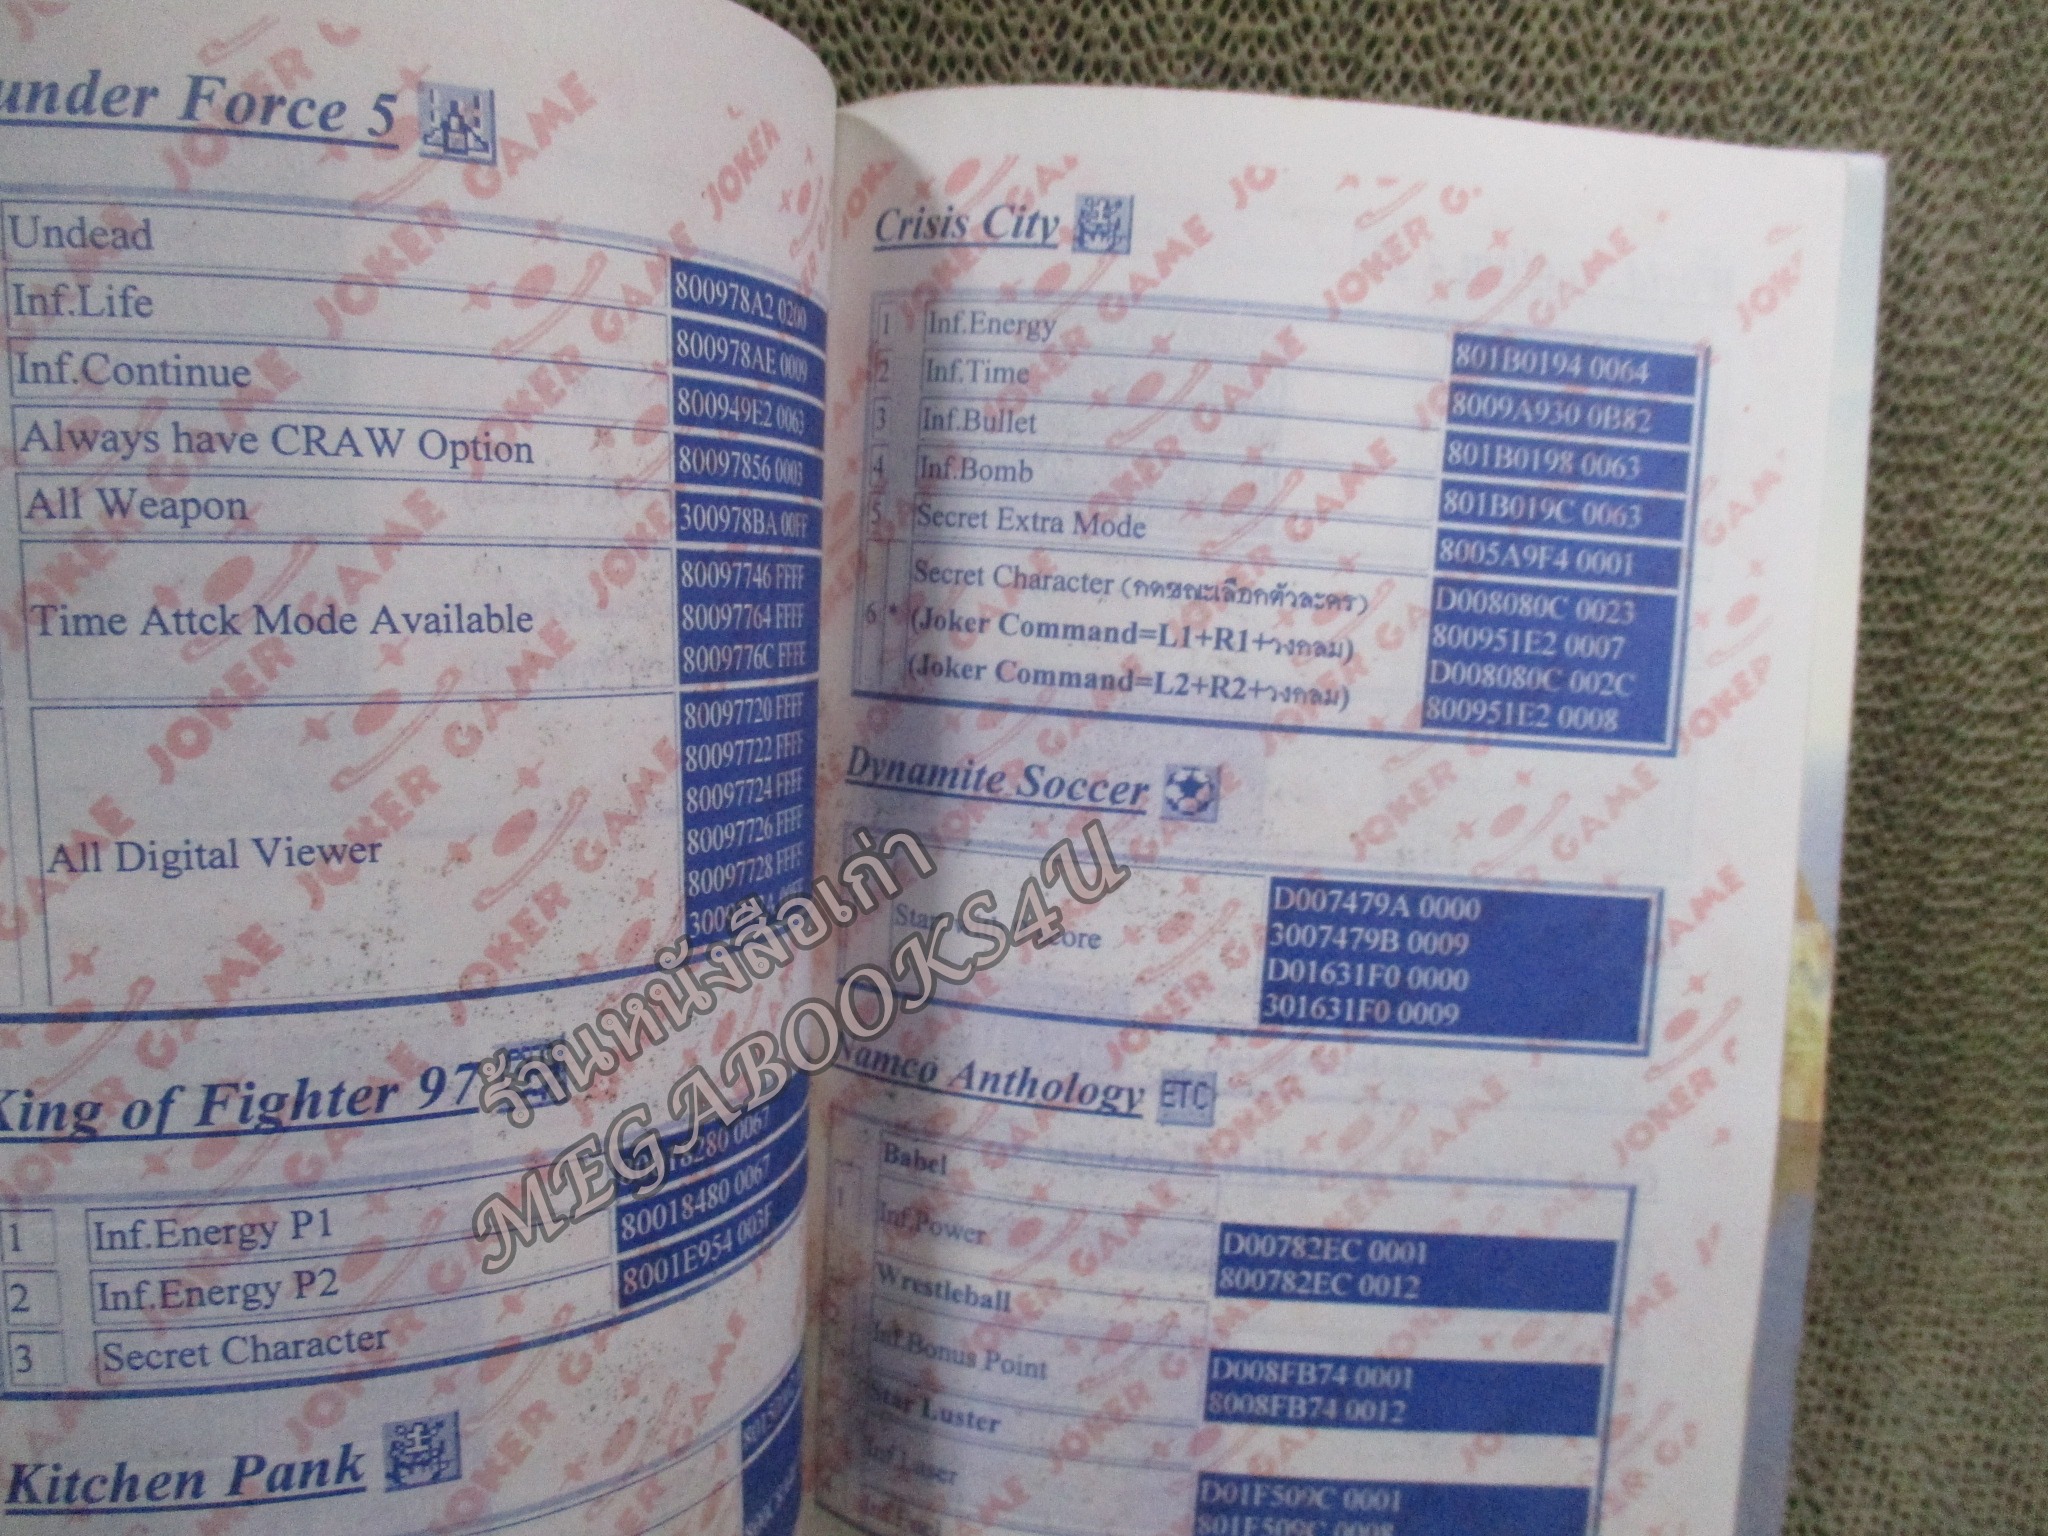 under Force 5
Undead 800978A2 0200
Inf.Life 800978AE 0009
Inf.Continue 800949E2 0063
Always have CRAW Option 80097856 0003
All Weapon 300978BA 00FF
Time Attck Mode Available
80097746 FFFF
80097764 FFFF
8009776C FFFE
All Digital Viewer
80097720 FFFF
80097722 FFFF
80097724 FFFF
80097726 FFFF
80097728 FFFF
King of Fighter 97
1 Inf.Energy P1
2 Inf.Energy P2 80018480 0067
3 Secret Character 8001E954 003F
Kitchen Pank
Crisis City
1 Inf.Energy 801B0194 0064
2 Inf.Time 8009A930 0B82
3 Inf.Bullet 801B0198 0063
4 Inf.Bomb 801B019C 0063
5 Secret Extra Mode 8005A9F4 0001
6 * Secret Character (กดขณะเลือกตัวละคร)
(Joker Command=L1+R1+วงกลม)
(Joker Command=L2+R2+วงกลม)
D008080C 0023
800951E2 0007
D008080C 002C
800951E2 0008
Dynamite Soccer
D007479A 0000
3007479B 0009
D01631F0 0000
301631F0 0009
Namco Anthology ETC
1 Babel
Inf.Power
D00782EC 0001
800782EC 0012
Wrestleball
Inf.Bonus Point
D008FB74 0001
8008FB74 0012
Star Luster
Inf.Laser
D01F509C 0001
801F509C 0008
JOKER GAME
ร้านหนังสือเก่า
MEGABOOKS4U